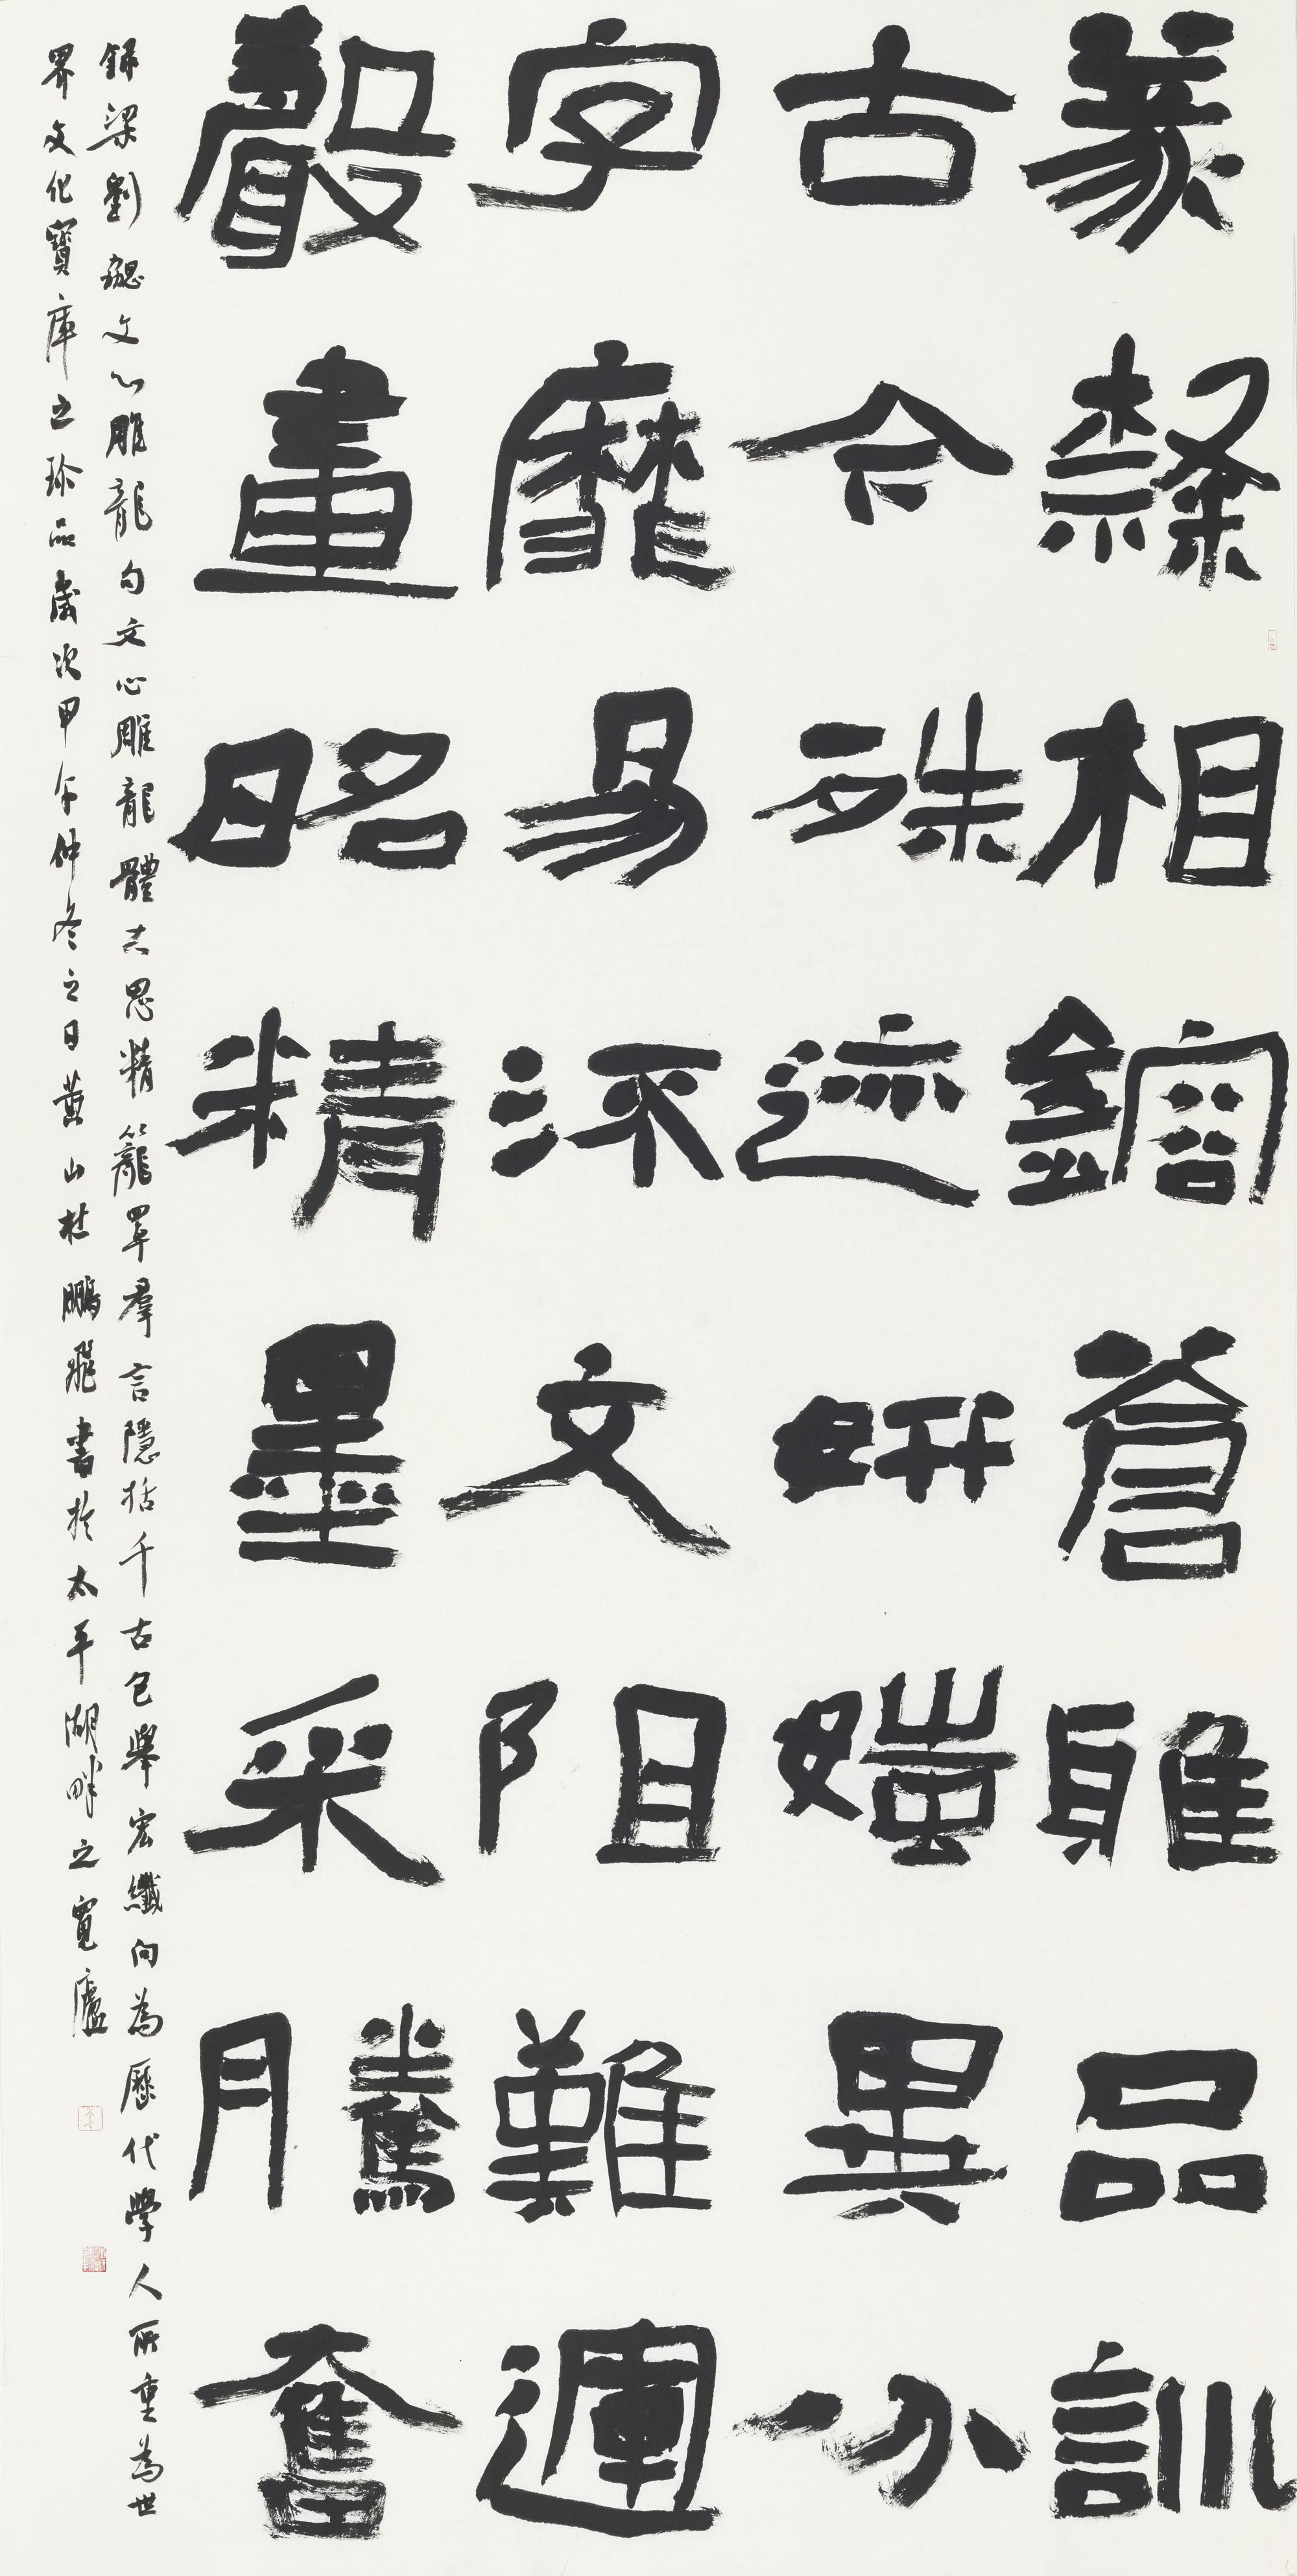 篆隸相鎔蒼雅品訓
古今殊迹妍媸異分
字靡易流文阻難運
聲畫昭精墨采騰奮
錄梁劉勰文心雕龍句文心雕龍體大思精籠罩羣言隱括千古包舉宏纖向為歷代學人所重為世
界文化寶庫之珍品歲次甲午仲冬之日黃山杜鵬飛書於太平湖畔之寬廬